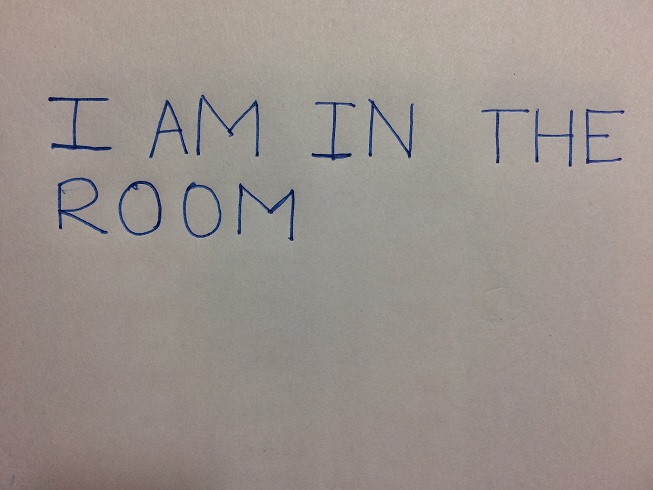 I AM IN THE
ROOM